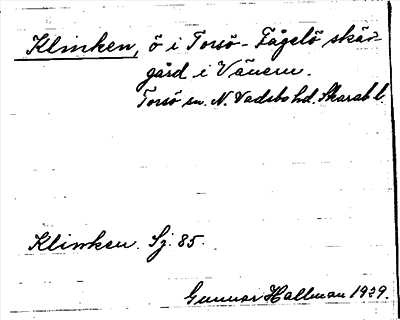 Klinken, ö i Torsö-Fågelö skär-
gård i Vänern.
Torsö sn. N. Vadsbo hd. Skarab. l.
Klinken. Sj. 85.
Gunnar Hallman 1929.